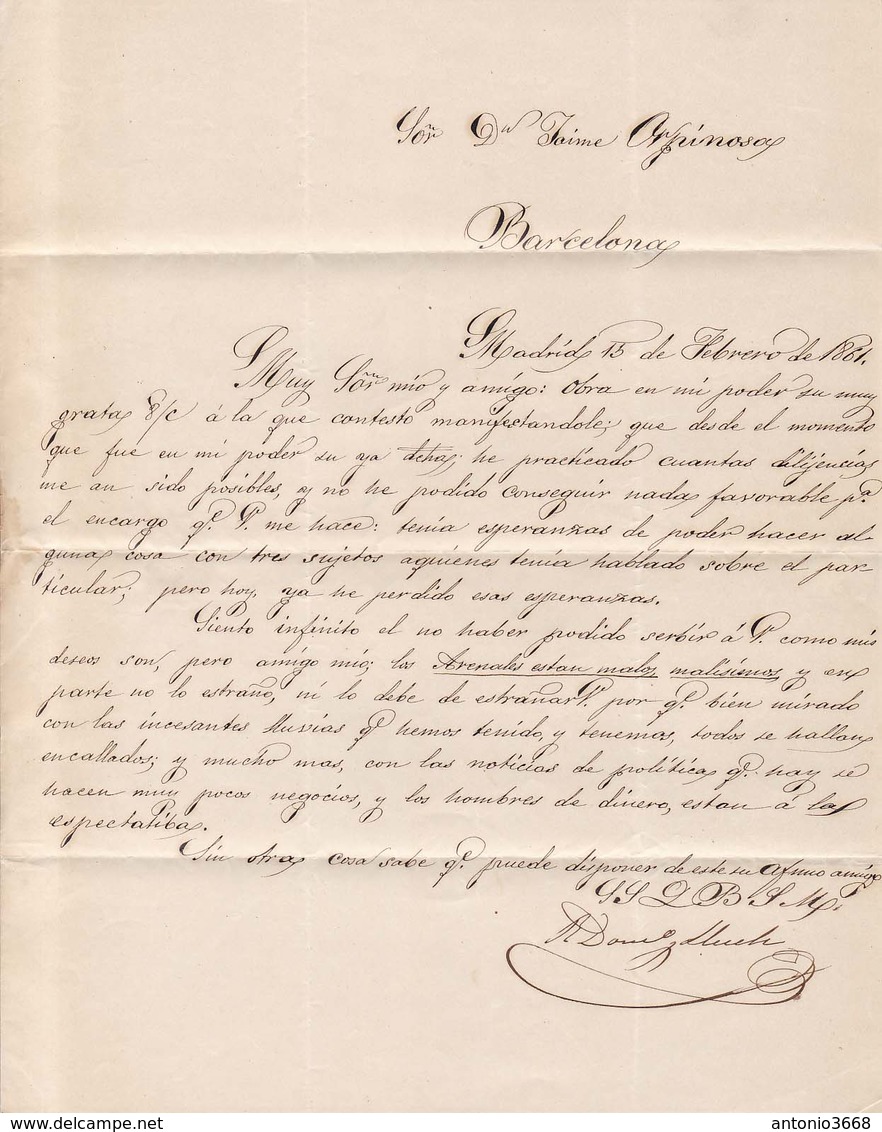 Sor. Dn Jaime Orpinosa
Barcelona
Madrid 15 de Febrero de 1861.
Muy Sor. mio y amigo: Obra en mi poder su muy
grata 8/c á la que contesto manifestandole; que desde el momento
que fué en mi poder su ya dcha; he practicado cuantas dilijencias
me an sido posibles, y no he podido conseguir nada favorable pa.
el encargo qe. V. me hace: tenia esperanzas de poder hacer al
guna cosa con tres sujetos aquienes tenia hablado sobre el par
ticular; pero hoy, ya he perdido esas esperanzas.
Siento infinito el no haber podido serbir á V. como mis
deseos son, pero amigo mio; los Arenales estan malos, malisimos, y en
parte no lo estraño, ni lo debe de estrañar V. por qe. bien mirado
con las incesantes lluvias qe hemos tenido, y tenemos, todos se hallan
encallados; y mucho mas, con las noticias de politica qe. hay se
hacen muy pocos negocios, y los hombres de dinero, estan á la
espectatiba.
Sin otra cosa sabe qe. puede disponer de este su afmo amigo
S S Q B S M.
Domo. Lluch
antonio3668